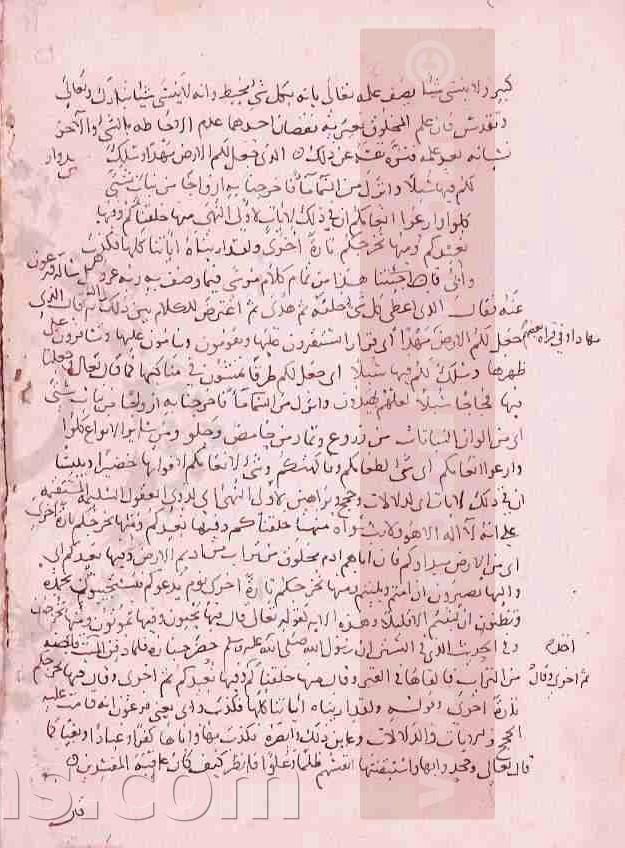 كبير ولا ينسى شيئا يصف علمه تعالى بانه بكل شي محيط وانه لا ينسى شيا تبارك وتعالى
وتقدس فان علم المخلوق يعتريه نقصانان احدهما عدم الاحاطه بالشي والاخر
نسيانه بعد علمه فنزه نفسه عن ذلك الذي جعل لكم الارض مهدا وسلك
لكم فيها سبلا وانزل من السما ما فاخرجنا به ازواجا من نبات شتى
كلوا وارعوا انعامكم ان في ذلك لايات لاولى النهى منها خلقناكم وفيها
نعيدكم ومنها نخرجكم تارة اخرى ولقد اريناه اياتنا كلها فكذب
وابى هذا من تمام كلام موسى فيما وصف به ربه عز وجل حين ساله فرعون
عنه فقال الذى اعطى كل شي خلقه ثم هدى ثم اعترض الكلام بين ذلك ثم قال الذى
جعل لكم الارض مهدا اى قرارا تستقرون عليها وتقومون وتنامون عليها وتسافرون على
ظهرها وسلك لكم فيها سبلا اى جعل لكم طرقا تمشون في مناكبها كما قال تعالى وجعلنا
فيها فجاجا سبلا لعلهم يهتدون وانزل من السما ما فاخرجنا به ازواجا من نبات شتى
اى من الوان النباتات من زروع وثمار من حامض وحلو وسائر الانواع كلوا
وارعوا انعامكم اى شى لطعامكم وفاكهتكم وشى لانعامكم لاقواتها خضرا ويبسا
ان في ذلك لايات اى لدلالات وحجج وبراهين لاولى النهى اى لذوى العقول السليمة المستقيمه
على انه لا اله الا هو ولا رب سواه منها خلقناكم وفيها نعيدكم ومنها نخرجكم تارة اخرى
اى من الارض مبداوكم فان اباهم ادم مخلوق من تراب من اديم الارض وفيها نعيدكم اى
واليها تصيرون اذا متم وبليتم ومنها نخرجكم تارة اخرى يوم يدعوكم فتستجيبون بحمده
وتظنون ان لبثتم الا قليلا وهذه الايه كقوله تعالى قال فيها تحيون وفيها تموتون ومنها تخرجون
وفي الحديث الذى في السنن ان رسول الله صلى الله عليه وسلم حضر جنازة فلما دفن الميت اخذ قبضه
من التراب فالقاها في القبر وقال منها خلقناكم ثم اخذ اخرى وقال وفيها نعيدكم ثم اخرى وقال ومنها نخرجكم
تارة اخرى وقوله ولقد اريناه اياتنا كلها فكذب وابى يعنى فرعون انه قامت عليه
الحجج والايات والدلالات وعاين ذلك وابصره فكذب بها واباها كفرا وعنادا وبغيا كما
قال تعالى وجحدوا بها واستيقنتها انفسهم ظلما وعلوا فانظر كيف كان عاقبة المفسدين
قال